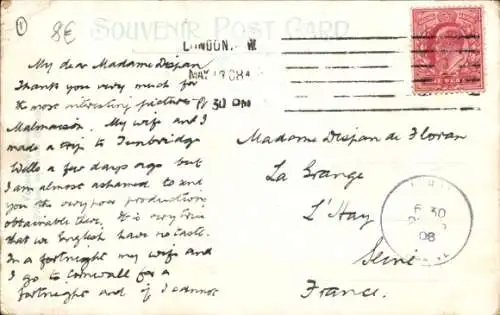 ①
8€
SOUVENIR POST CARD
LONDON. W
MAY 08
30 PM
My dear Madame Desjan
Thank you very much for
the most interesting picture
Malmaison. My wife and I
made a trip to Tunbridge
Wells a few days ago but
I am almost ashamed to send
you the very poor productions
obtainable there. It is very true
that we English have no taste.
In a fortnight my wife and
I go to Cornwall for a
fortnight and if I cannot
Madame Desjan de Floran
La Grange
L'Hay
Seine
France.
6 30
08